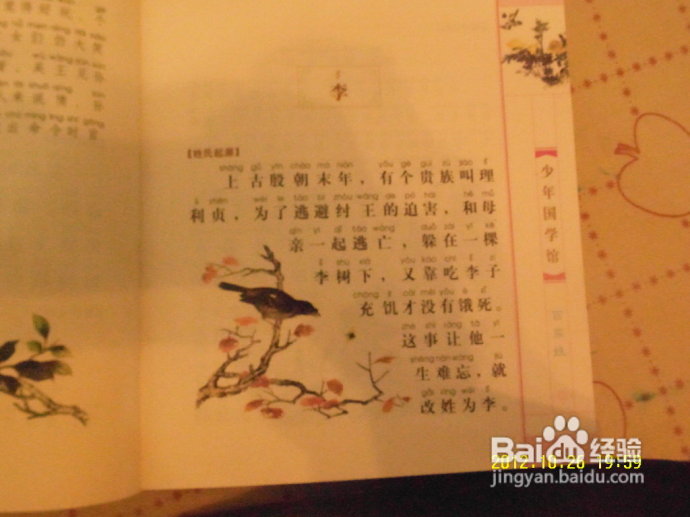 李
【姓氏起源】
shàng gǔ yīn cháo mò nián yǒu gè guì zú jiào lǐ
上古殷朝末年，有个贵族叫理
lì zhēn wèi le táo bì zhòu wáng de pò hài hé mǔ
利贞，为了逃避纣王的迫害，和母
qīn yì qǐ táo wáng duǒ zài yì kē
亲一起逃亡，躲在一棵
lǐ shù xià yòu kào chī lǐ zi
李树下，又靠吃李子
chōng jī cái méi yǒu è sǐ
充饥才没有饿死。
zhè shì ràng tā yì
这事让他一
shēng nán wàng jiù
生难忘，就
gǎi xìng wéi lǐ
改姓为李。
少年国学馆
百家姓
后命令时自
2012.10.26 19:59
Baidu经验
jingyan.baidu.com